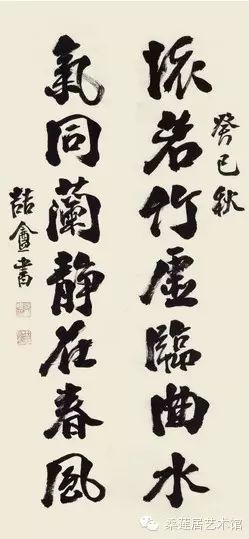 癸巳秋
懷若竹虛臨曲水
氣同蘭靜在春風
喆盦書
桑莲居艺术馆